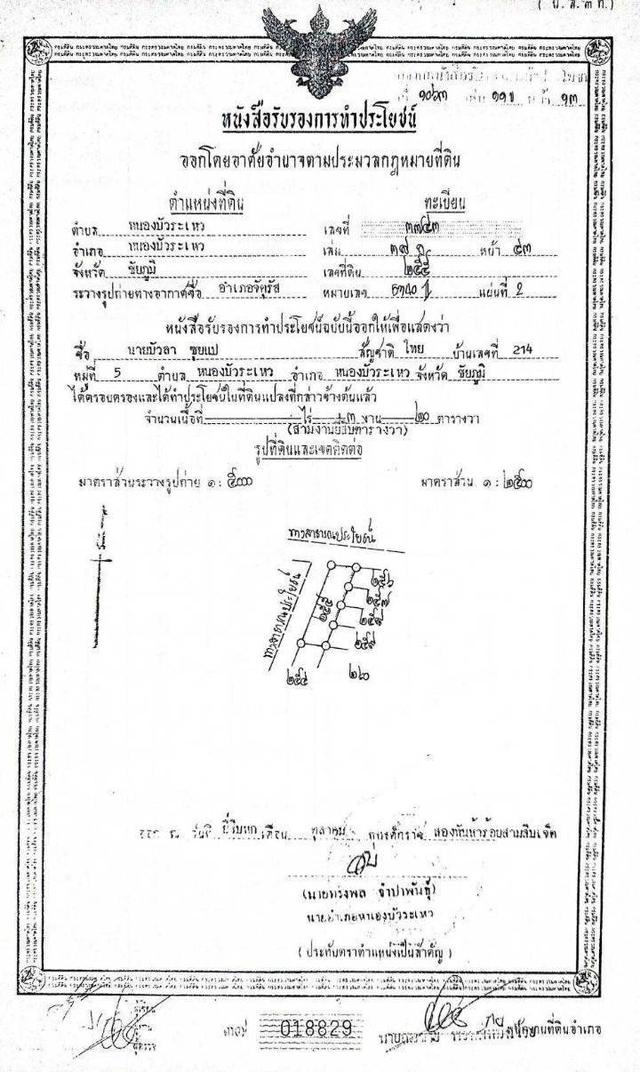 ( น.ส.๓ ก.)
หนังสือรับรองการทำประโยชน์
ออกโดยอาศัยอำนาจตามประมวลกฎหมายที่ดิน
ตำแหน่งที่ดิน ทะเบียน
ตำบล หนองบัวระเหว เลขที่ ๓๗๔๓
อำเภอ หนองบัวระเหว เล่ม ๓๘ ก หน้า ๔๓
จังหวัด ชัยภูมิ เลขที่ดิน ๒๕๕
ระวางรูปถ่ายทางอากาศชื่อ อำเภอจัตุรัส หมายเลข แผ่นที่ 2
หนังสือรับรองการทำประโยชน์ฉบับนี้ออกให้เพื่อแสดงว่า
ชื่อ นายบัวลา ชุยแป สัญชาติ ไทย บ้านเลขที่ 214
หมู่ที่ 5 ตำบล หนองบัวระเหว อำเภอ หนองบัวระเหว จังหวัด ชัยภูมิ
ได้ครอบครองและได้ทำประโยชน์ในที่ดินแปลงที่กล่าวข้างต้นแล้ว
จำนวนเนื้อที่ - ไร่ ๓ งาน ๒๐ ตารางวา
(สามงานยี่สิบตารางวา)
รูปที่ดินและเขตติดต่อ
มาตราส่วนระวางรูปถ่าย ๑ : ๕๐๐๐ มาตราส่วน ๑ : ๒๕๐๐
ทางสาธารณประโยชน์
ทางสาธารณประโยชน์
๒๕๕
๒๕๖
๒๕๗
๒๕๘
๒๕๙
๒๕๔ ๒๖๐
วันที่ ยี่สิบหก เดือน ตุลาคม พุทธศักราช สองพันห้าร้อยสามสิบเจ็ด
(นายทรงพล จำปาพันธุ์)
นายอำเภอหนองบัวระเหว
(ประทับตราตำแหน่งเป็นสำคัญ)
018829
เจ้าพนักงานที่ดินอำเภอ